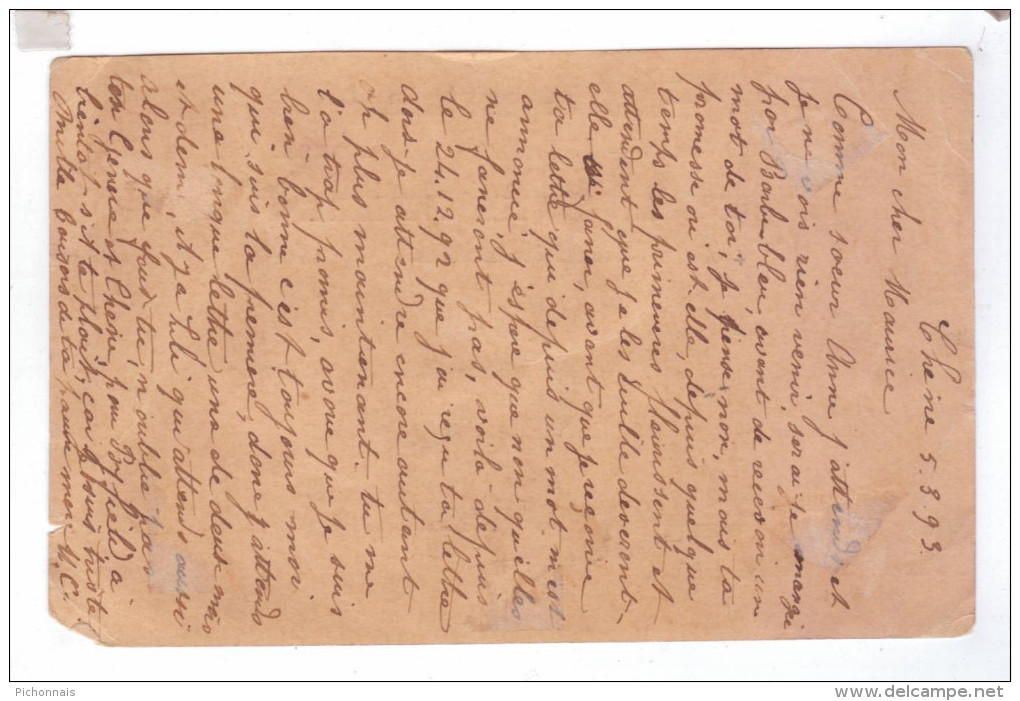 Theine 5.3.93.
Mon cher Maurice
Comme soeur Anne j'attends et
je ne vois rien venir, serai je mangé
par Barbe bleu, avant de recevoir un
mot de toi, je pense non, mais ta
promesse où est elle, depuis quelque
temps les primeures fleurissent et
attendent que je les Quille devront
elle se faner, avant que je reçoive
ta lettre qui depuis un mot m'est
annoncé, j'espère que mon qu'elles
ne faneront pas, voilà depuis
le 24.12.92 que j'ai reçu ta lettre
dois-je attendre encore autant
oh plus maintenant. tu me
l'a trop promis, avoue que je suis
bien bonne c'est toujours moi
qui suis la première, donc j'attends
une longue lettre, une de deux mois
et demi, il y a Lili qui attends aussi
alons que fais tu, n'oublie pas
ton Génève et Theine, pour
bientot s'il te plait, car je suis triste
Mille baisers de ta pauvre mee M.C.
Pichonnais
www.delcampe.net